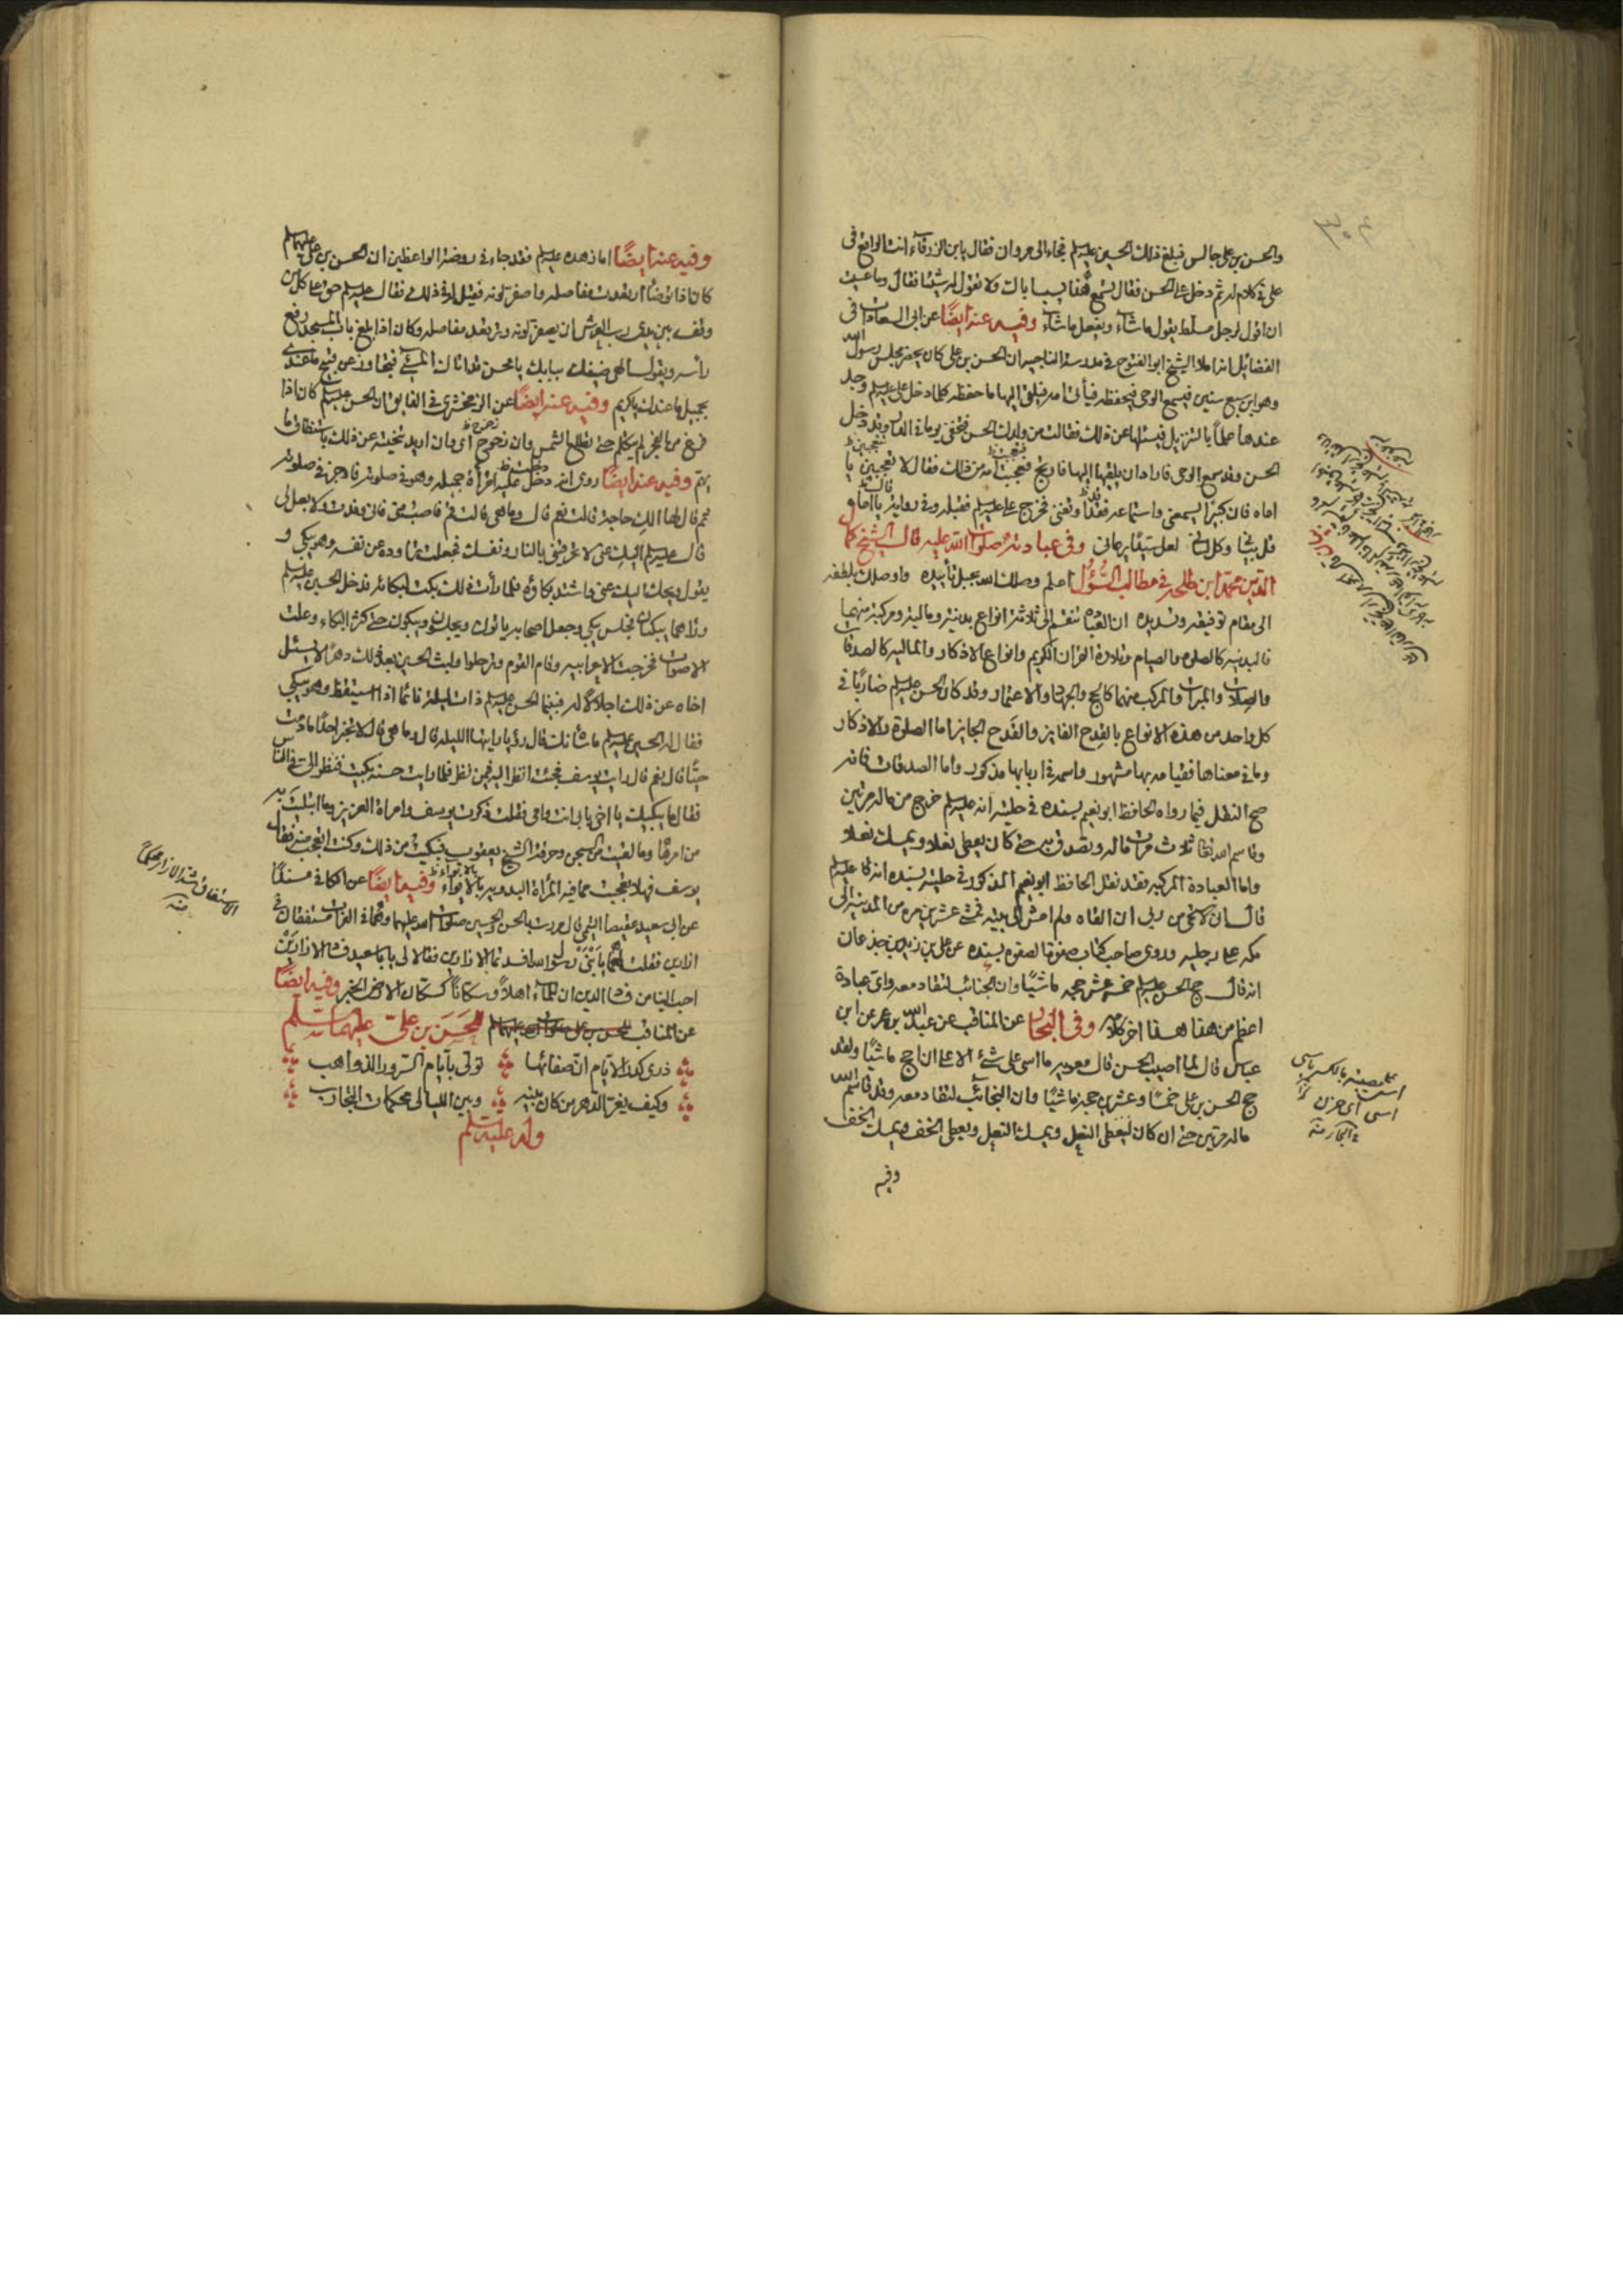 والحسن بن على جالس فبلغ ذلك الحسين عليه السلم فجاء الى مروان فقال يا بن الزرقاء انت الواقع فى
على فى كلام له ثم دخل على الحسن فقال تسمع هذا يسب اباك ولا تقول له شيئا فقال وما عسيت
ان اقول لرجل مسلط يقول ما شاء ويفعل ما شاء وفيه عنه ايضًا عن ابى السعادات فى
الفضائل انه املا الشيخ ابو الفتوح فى مدرسة الناجيه ان الحسن بن على كان يحضر مجلس رسول الله
وهو ابن سبع سنين فيسمع الوحى فيحفظه فيأتى امه فيلقى اليها ما حفظه كلما دخل على عليه السلم وجد
عندها علمًا بالتنزيل فيسئلها عن ذلك فقالت من ولدك الحسن فتخفى يوما فى الدار وقد دخل
الحسن وقد سمع الوحى فاراد ان يلقيها اليها فارتج فعجبت امه من ذلك فقال لا تعجبين يا
اماه فان كبيرًا يسمعنى واستماعه فقد اوقفنى فخرج على عليه السلم فقبله وفى رواية يا اماه
قل بيانى وكل لسانى لعل سيدًا يرعانى وفى عبادته صلوات الله عليه قال الشيخ كمال
الدين محمد ابن طلحة فى مطالب السُّؤُل اعلم وصلك الله بجبل تأييده واوصلك بلطفه
الى مقام توفيقه وتسديده ان العبادة تنقسم الى ثلاثة انواع بدنية ومالية ومركبة منهما
فالبدنيه كالصلوة والصيام وتلاوة القران الكريم وانواع الاذكار والماليه كالصدقات
والصلات والمبرات والمركب منهما كالحج والجهاد والاعتمار وقد كان الحسن عليه السلم ضاربًا فى
كل واحد من هذه الانواع بالقدح الفايز والقدح الحايز اما الصلوة والاذكار
وما فى معناها فقيامه بها مشهور واسمه فى اربابها مذكور واما الصدقات فانه
صح النقل فيما رواه الحافظ ابو نعيم بسنده فى حليته انه عليه السلم خرج من ماله مرتين
وقاسم الله تعا ثلاث مرات ماله وتصدق به حتى كان يعطى نعلا ويمسك نعلا
واما العبادة المركبه فقد نقل الحافظ ابو نعيم المذكور فى حليته بسنده انه قال عليه السلم
قال انى لاستحى من ربى ان القاه ولم امش الى بيته فمشى عشرين مره من المدينه الى
مكه على رجليه وروى صاحب كتاب صفوة الصفوه بسنده عن على بن زيد بن جذعان
انه قال حج الحسن عليه السلم خمس عشر حجه ماشيًا وان الجنائب لتقاد معه واى عبادة
اعظم من هذا هذا اخر كلامه وفى البحار عن المناقب عن عبد الله بن عمر عن ابن
عباس قال لما اصيب الحسن قال معويه ما اسى على شئ الا على ان احج ماشيًا ولقد
حج الحسن بن على خمسًا وعشرين حجه ماشيًا وان النجائب لتقاد معه وقد قاسم الله
ماله مرتين حتى ان كان ليعطى النعل ويمسك النعل ويعطى الخف ويمسك الخف
وفيه
اسى اى حزن
البحار منه
وفيه عنه ايضًا اما زهده عليه السلم فقد جاء فى روضة الواعظين ان الحسن بن على عليهما السلم
كان اذا توضأ ارتعدت مفاصله واصفر لونه فقيل له فى ذلك فقال عليه السلم حق على كل من
وقف بين يدى رب العرش ان يصفر لونه وترتعد مفاصله وكان اذا بلغ باب المسجد رفع
رأسه ويقول الهى ضيفك ببابك يا محسن قد اتاك المسئ فتجاوز عن قبيح ما عندى
بجميل ما عندك يا كريم وفيه عنه ايضًا عن الزمخشرى فى الفايق ان الحسن عليه السلم كان اذا
فرغ من الفجر لم يتكلم حتى تطلع الشمس وان زحزح اى وان اريد تنحيته عن ذلك باستنطاق ما
يهم وفيه عنه ايضًا روى انه دخلت عليه امرأة جميله وهو فى صلوته فاوجز فى صلوته
ثم قال لها الك حاجة قالت نعم قال وما هى قالت قم فاصب منى فانى وفدت ولا بعل لى
قال عليه السلم اليك عنى لا تحرقينى بالنار ونفسك فجعلت تراوده عن نفسه وهو يبكى و
يقول ويحك اليك عنى واشتد بكاؤه فلما رأت ذلك بكت لبكائه فدخل الحسين عليه السلم
ورآهما يبكيان فجلس يبكى وجعل اصحابه ياتون ويجلسون ويبكون حتى كثر البكاء وعلت
الاصوات فخرجت الاعرابيه وقام القوم وترحلوا ولبث الحسين بعد ذلك دهرًا لا يسئل
اخاه عن ذلك اجلالًا له فبينما الحسن عليه السلم ذات ليلة نائمًا اذا استيقظ وهو يبكى
فقال له الحسين عليه السلم ما شأنك قال رؤيا رايتها الليله قال وما هى قال لا تخبر احدًا ما دمت
حيًّا قال نعم قال رايت يوسف فجئت انظر اليه فيمن نظر فلما رايت حسنه بكيت فنظر الى فى الناس
فقال ما يبكيك يا اخى بابى انت وامى فقلت ذكرت يوسف وامراة العزيز وما ابتليت به
من امرها وما لقيت من السجن وحرقة الشيخ يعقوب فبكيت من ذلك وكنت اتعجب منه فقال
يوسف فهلا تعجبت مما فيه المرأة البدويه بالابواء وفيه ايضًا عن الكافى مسندًا
عن ابى سعيد عقيصا التيمى قال مررت بالحسن والحسين صلوات الله عليهما وهما فى الفرات مستنقعان فى
ازارين فقلت لهما يا بنى رسول الله افسدتما الازارين فقالا لى يابا سعيد فساد الازارين
احب الينا من فساد الدين ان للماء اهلا وسكانًا كسكان الارض الخبر وفيه ايضًا
عن المناقب للحسن بن على عليهما السلم
ذرى كدر الايام ان صفائها تولى بايام السرور الذواهب
وكيف يغر الدهر من كان بينه وبين الليالى محكمات التجارب
وله عليه السلم
منه